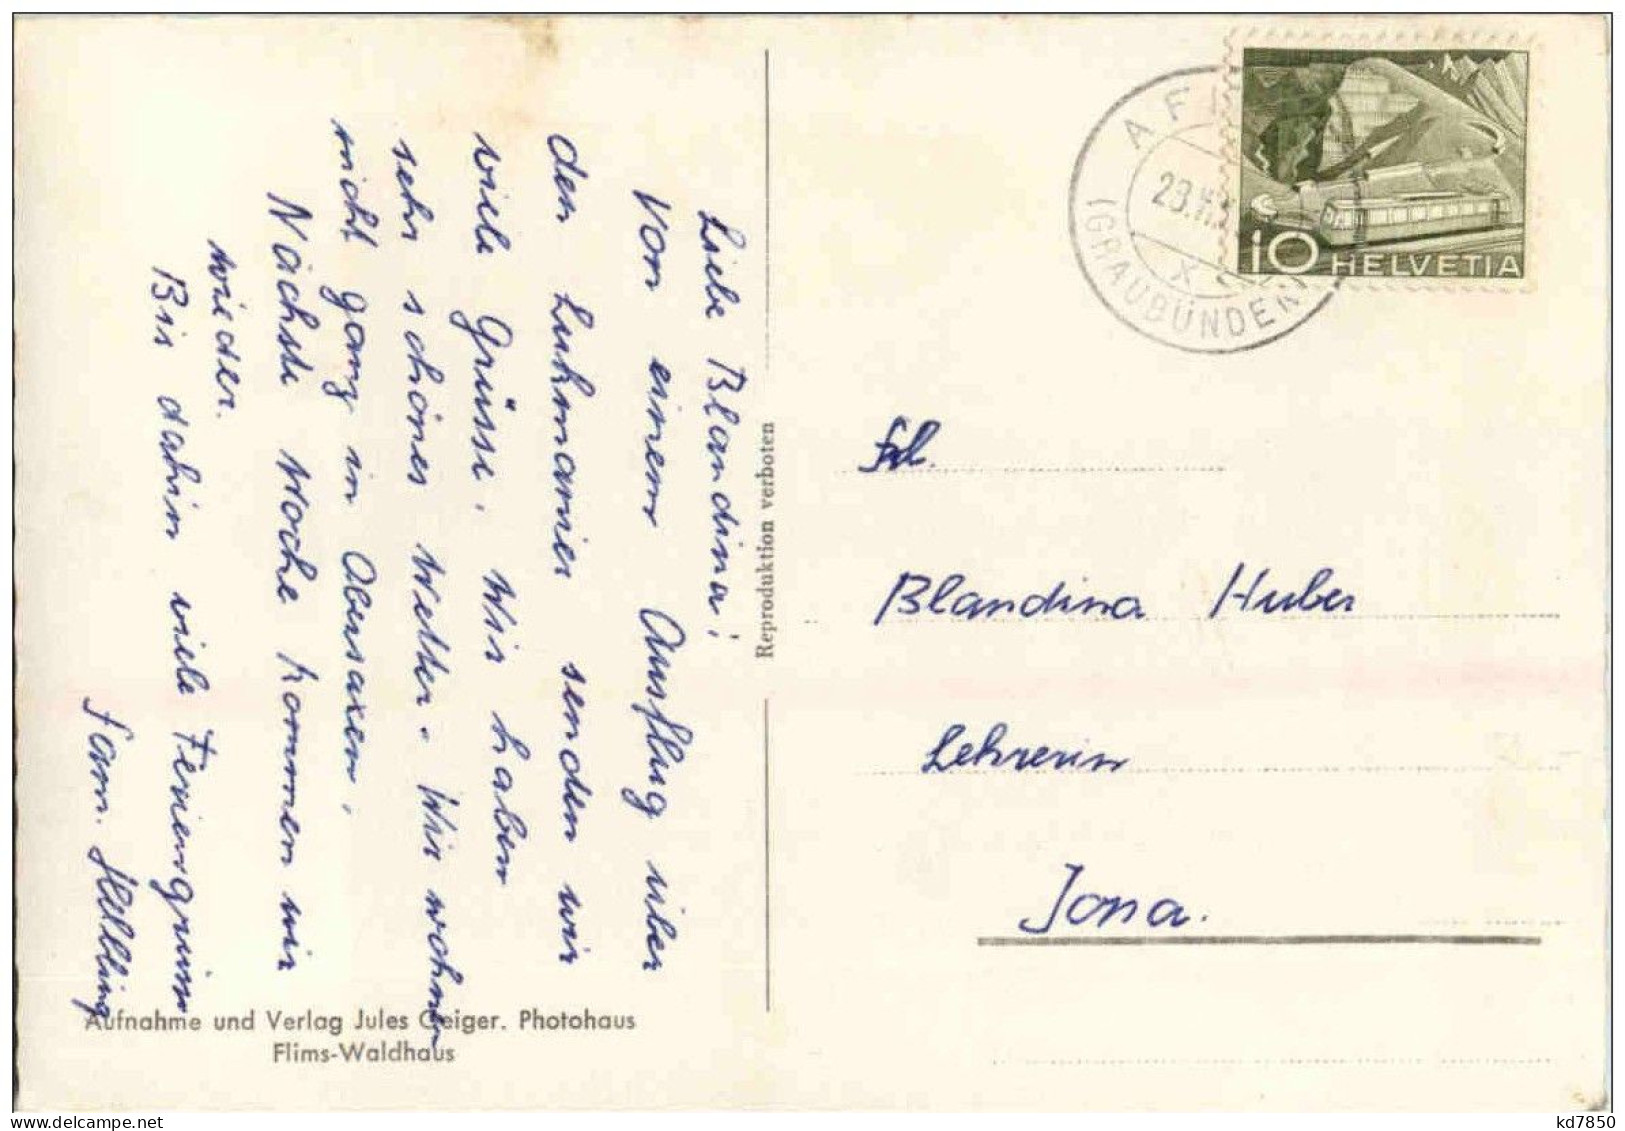 Liebe Blandina!
Von einem Ausflug über
den Lukmanier senden wir
viele Grüsse. Wir haben
sehr schönes Wetter. Wir wohnen
nicht ganz in Obersaxen.
Nächste Woche kommen wir
wieder.
Bis dahin viele Feriengrüsse
Fam. Helbling
Aufnahme und Verlag Jules Geiger. Photohaus
Flims-Waldhaus
Reproduktion verboten
(GRAUBÜNDEN)
X
10 HELVETIA
Frl.
Blandina Huber
Lehrerin
Jona.
kd7850